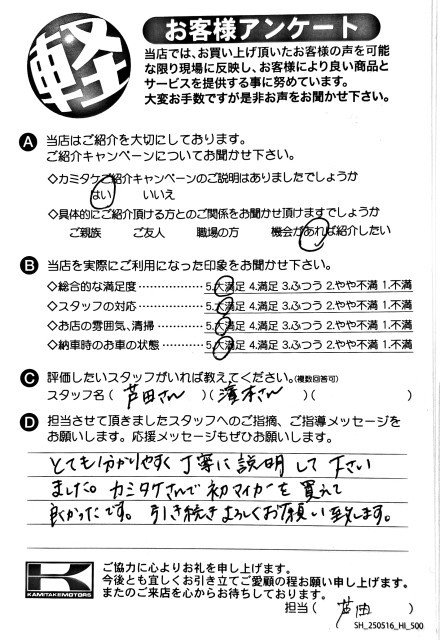 軽
お客様アンケート
当店では、お買い上げ頂いたお客様の声を可能
な限り現場に反映し、お客様により良い商品と
サービスを提供する事に努めています。
大変お手数ですが是非お声をお聞かせ下さい。
A 当店はご紹介を大切にしております。
ご紹介キャンペーンについてお聞かせ下さい。
◇カミタケご紹介キャンペーンのご説明はありましたでしょうか
はい いいえ
◇具体的にご紹介頂ける方とのご関係をお聞かせ頂けますでしょうか
ご親族 ご友人 職場の方 機会があれば紹介したい
B 当店を実際にご利用になった印象をお聞かせ下さい。
◇総合的な満足度 5.大満足 4.満足 3.ふつう 2.やや不満 1.不満
◇スタッフの対応 5.大満足 4.満足 3.ふつう 2.やや不満 1.不満
◇お店の雰囲気、清掃 5.大満足 4.満足 3.ふつう 2.やや不満 1.不満
◇納車時のお車の状態 5.大満足 4.満足 3.ふつう 2.やや不満 1.不満
C 評価したいスタッフがいれば教えてください。(複数回答可)
スタッフ名 ( 芦田さん )( 濱本さん )( )
D 担当させて頂きましたスタッフへのご指摘、ご指導メッセージを
お願いします。応援メッセージもぜひお願いします。
とても分かりやすく丁寧に説明して下さい
ました。カミタケさんで初マイカーを買えて
良かったです。引き続きよろしくお願い致します。
KAMITAKE MOTORS
ご協力に心よりお礼を申し上げます。
今後とも宜しくお引き立てご愛顧の程お願い申し上げます。
またのご来店を心からお待ちしております。
担当 ( 芦田 )
SH_250516_HI_500